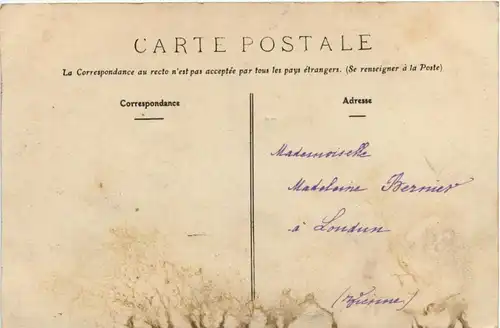 CARTE POSTALE
La Correspondance au recto n'est pas acceptée par tous les pays étrangers. (Se renseigner à la Poste)
Correspondance
Adresse
Mademoiselle
Madeleine Bernier
à Loudun
(Vienne)